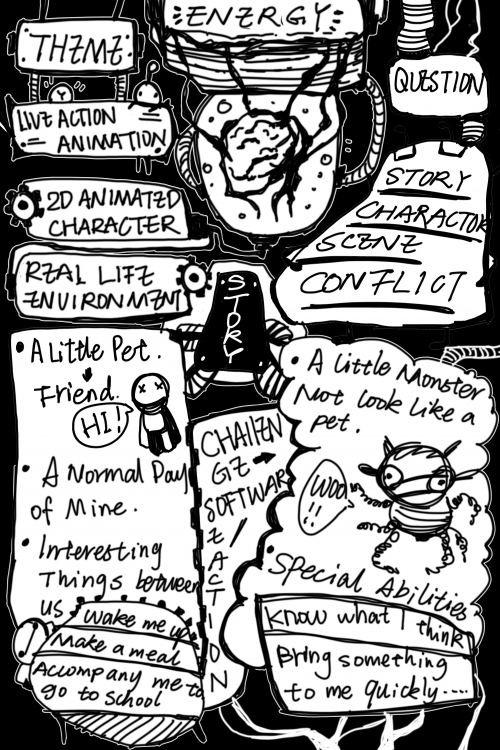 ENERGY
THEME
LIVE ACTION
ANIMATION
2D ANIMATED
CHARACTER
REAL LIFE
ENVIRONMENT
QUESTION
STORY
CHARACTOR
SCENE
CONFLICT
STORY
• A Little Pet.
Friend.
HI!
• A Normal Day
of Mine.
• Interesting
Things between
us
Wake me up
Make a meal
Accompany me to
go to school
CHALLEN
GE →
SOFTWARE
/
ACTION
• A Little Monster
Not look like a
pet.
WOO
!!
• Special Abilities
Know what I think
Bring something
to me quickly....